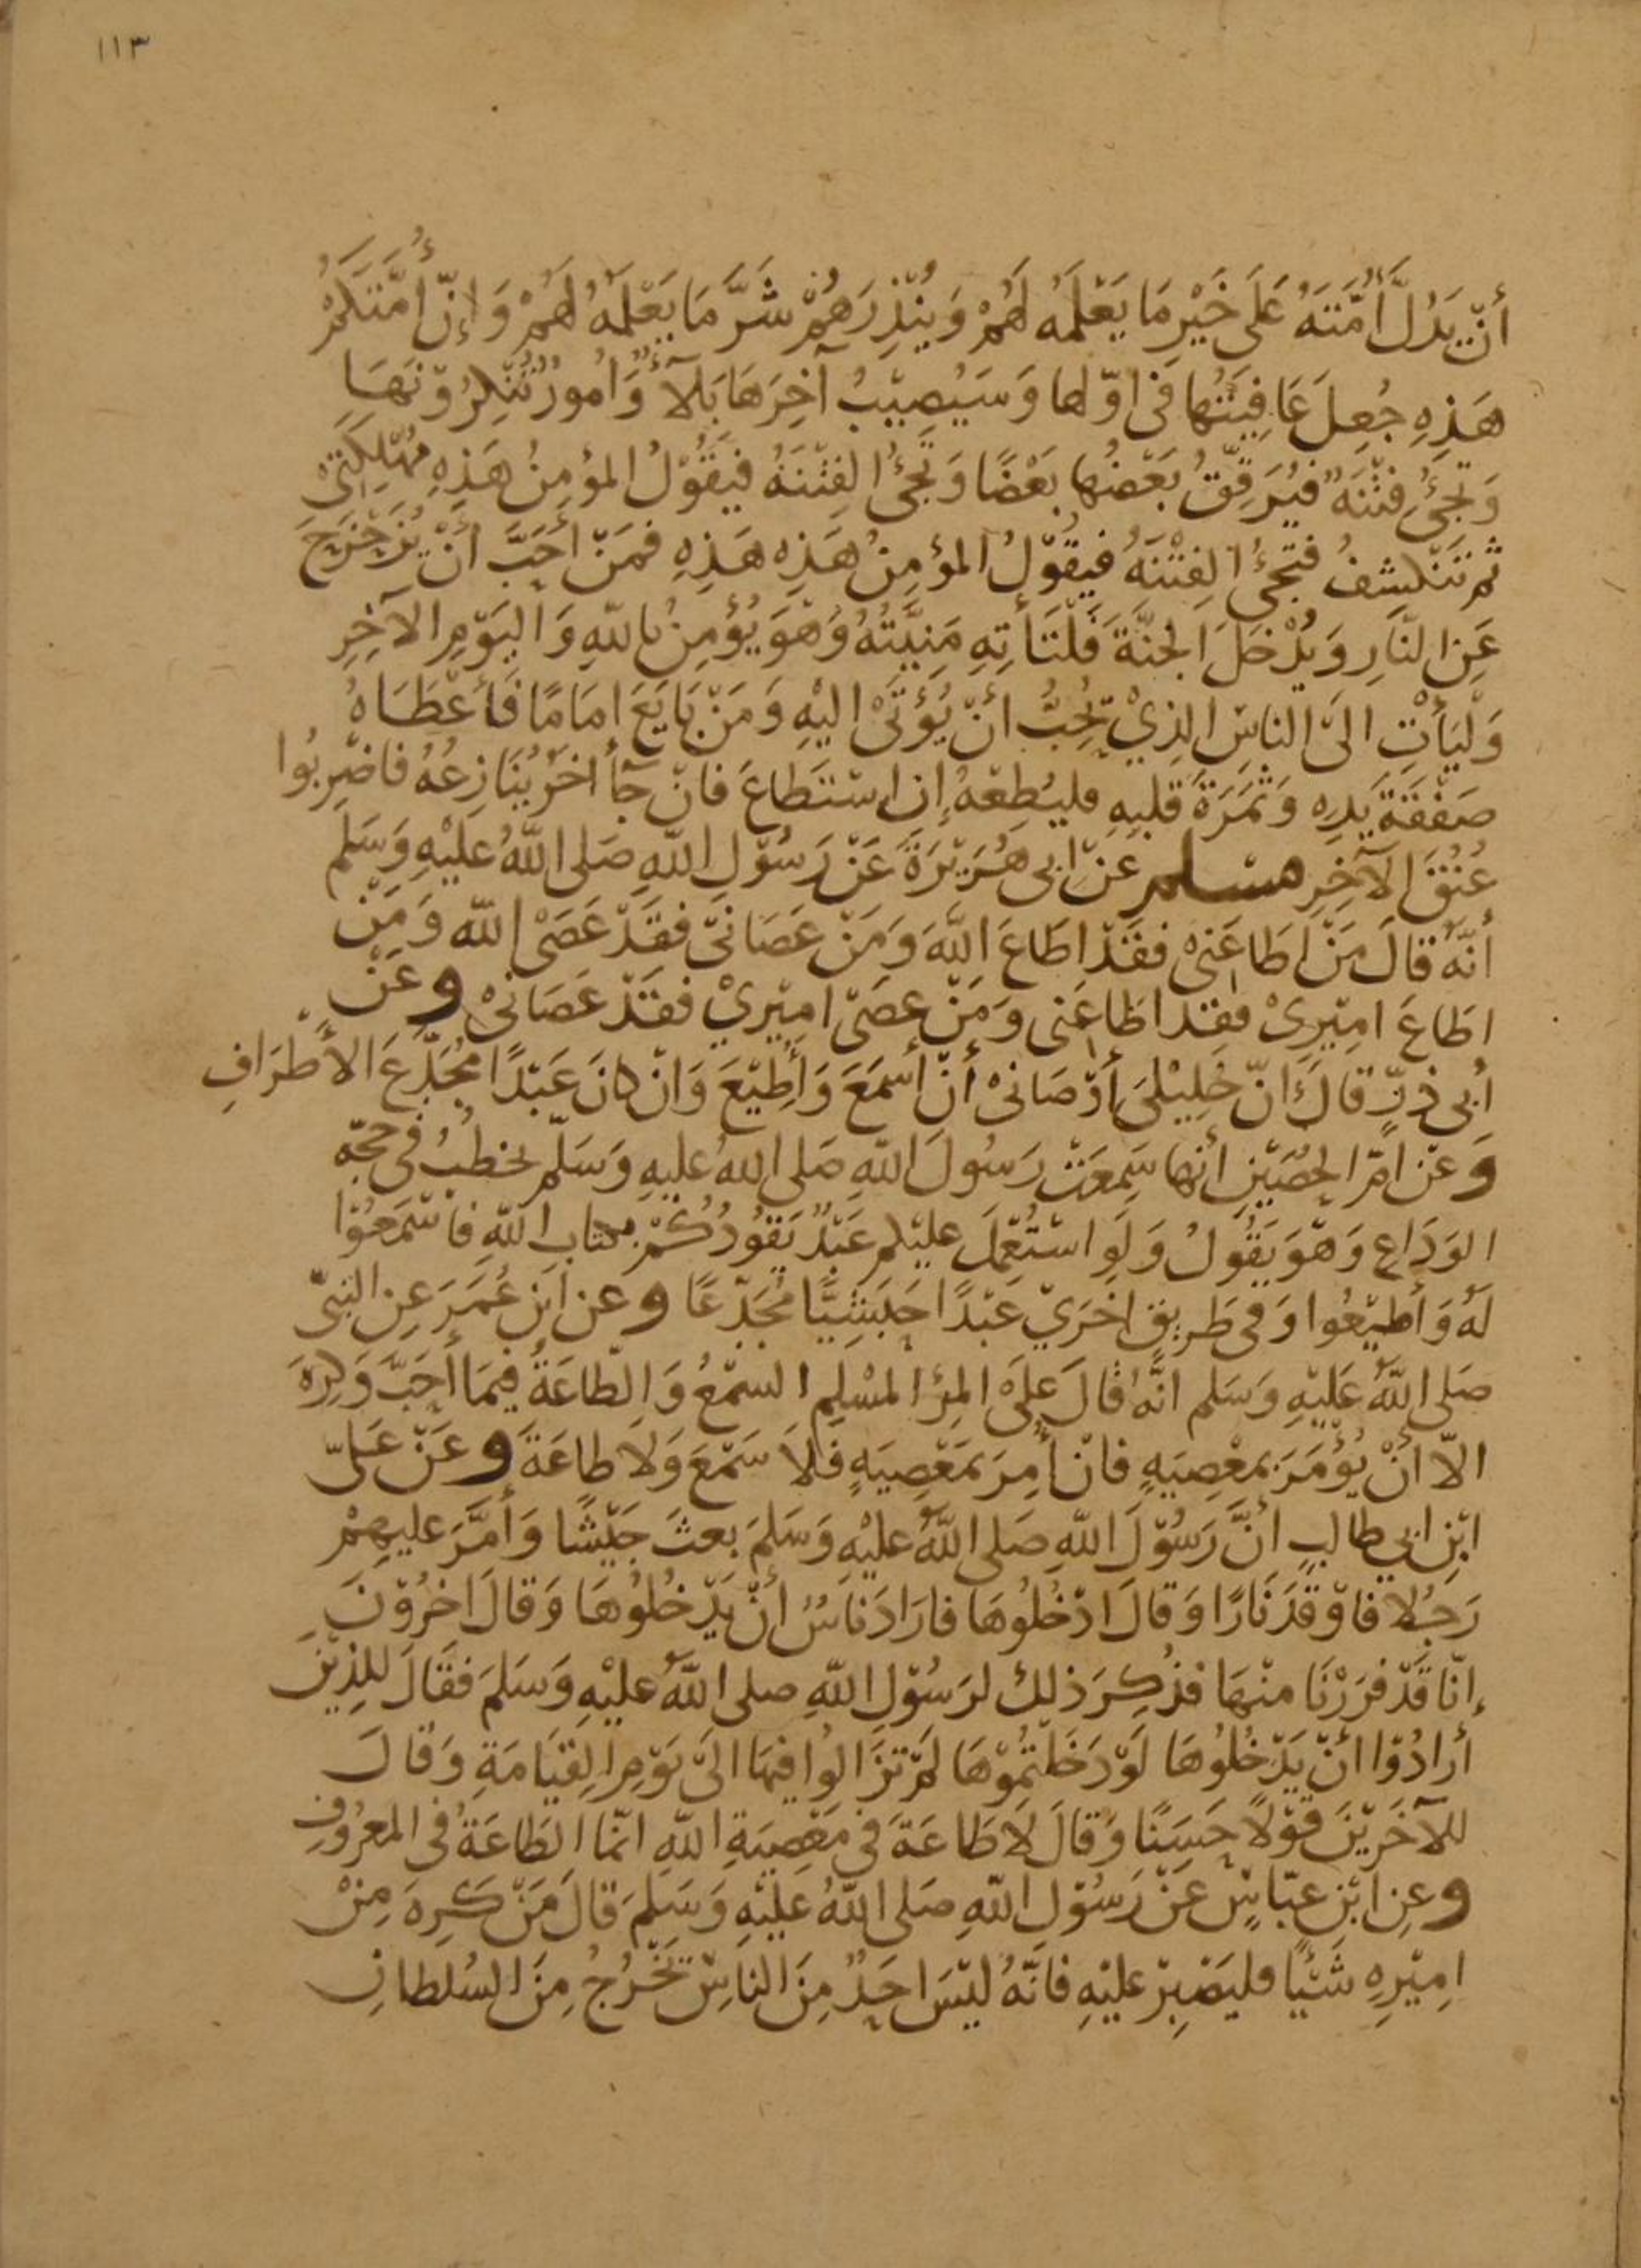 ١١٣
أنْ يَدُلَّ أُمَّتَهُ عَلَى خَيْرِ مَا يَعْلَمُه لَهُمْ وَيُنْذِرَهُمْ شَرَّ مَا يَعْلَمُهُ لَهُمْ وَإِنَّ أُمَّتَكُمْ
هَذِهِ جُعِلَ عَافِيَتُها فى اوّلها وَسَيُصِيْبُ آخِرَهَا بَلَآءٌ وَامُورٌ تُنْكِرُوْنَهَا
وَتَجِئُ فِتْنَةٌ فيُرَقِّقُ بَعْضُها بَعْضًا وَتَجِئُ الفِتْنَةُ فيَقُوْلُ المؤمِنُ هَذِهِ مُهْلِكَتِىْ
ثم تَنْكشِفُ فتجئُ الفِتْنَةُ فيقُوْلُ المؤمِنُ هَذِه هَذِهِ فمَنْ أحَبَّ أنْ يُزَحْزَحَ
عَنِ النَّارِ وَيُدْخَلَ الجنَّةَ فَلْتَأتِهِ مَنِيَّتُهُ وَهْوَ يُؤمِنُ باللهِ وَاليَوْمِ الآخِرِ
وَلْيَأْتِ الىَ الناسِ الذِيْ يُحِبُّ أنْ يُؤتَىْ اليْهِ وَمَنْ بَايَعَ إمَامًا فَأعْطَاهُ
صَفْقَةَ يَدِه وَثَمَرَةَ قلبِهِ فليُطِعْهُ إن اسْتَطاعَ فانْ جآ أخَرُ يُنَازِعُهُ فاضْرِبُوا
عُنُقَ الآخِرِ مسلم عنْ ابى هُرَيْرَةَ عَنْ رَسُوْلِ اللهِ صَلى اللهُ عليْهِ وَسَلم
أنَّهُ قالَ مَنْ اطَاعَنىْ فقَدْ اطَاعَ اللهَ وَمَنْ عَصَانىْ فقَدْ عَصَىْ الله وَمَنْ
اطَاعَ امِيْرِىْ فقد اطَاعَنى وَمَنْ عصَىْ امِيْرِيْ فقَدْ عَصَانىْ وعَنْ
أبى ذرٍّ قالَ انّ خَلِيْلىَ أوْصَانىْ أنْ أسْمَعَ وَأُطِيْعَ وَانْ كانَ عَبْدًا مُجَدَّعَ الأطْرَافِ
وَعنْ امّ الحصَيْنِ أنها سَمِعَتْ رَسُولَ اللهِ صَلى اللهُ عليهِ وَسَلّم يخطبُ فى حجّةِ
الوَدَاعِ وَهْوَ يَقُولُ وَلَو اسْتُعْمِلَ عليْكم عَبْدٌ يَقُودُكُمْ بكتابِ اللهِ فَاسْمَعُوْا
لَهُ وَأطيْعُوا وَفى طَرِيقٍ اخرَيْ عَبْدًا حَبَشِيًّا مُجَدَّعًا وعن ابْنِ عُمَرَ عنِ النبىّ
صَلى اللهُ عَلَيْهِ وَسَلم انَّهُ قالَ عَلَىَ المرْءِ المسْلِمِ السمْعُ وَالطّاعَةُ فيمَا أحَبَّ وَكرِهَ
الّا أنْ يُؤْمَرَ بمعْصِيَةٍ فانْ أُمِرَ بمَعْصِيَةٍ فَلَا سَمْعَ وَلا طاعَةَ وعَنْ عَلىّ
ابْنِ ابي طالبٍ انَّ رَسُوْلَ اللهِ صَلى اللهُ عليْهِ وَسَلمَ بعثَ جَيْشًا وَأمَّرَ عليهِمْ
رَجُلا فاوْقَدَ نَارًا وَقالَ ادْخُلُوْهَا فارَادَ نَاسٌ أنْ يَدْخُلُوْهَا وَقالَ اخرُوْنَ
إنّا قَدْ فرَرْنَا منْهَا فذُكِرَ ذلك لرَسُوْلِ اللهِ صلى اللهُ عليْهِ وَسَلمَ فقَالَ للذِيْنَ
أرادُوْا أنْ يَدْخُلُوْهَا لَوْ دَخَلْتمُوْهَا لمْ تزَالُوا فيْهَا الىَ يَوْمِ القيَامَةِ وَقالَ
للآخَرِيْنَ قَوْلًا حَسَنًا وَقالَ لَا طَاعَةَ في مَعْصِيَةِ اللهِ انمّا الطَاعَةُ فى المعْرُوْفِ
وعنِ ابْنِ عبّاسٍ عَنْ رَسُوْلِ اللهِ صَلى اللهُ عَليْهِ وَسَلمَ قالَ مَنْ كَرِهَ مِنْ
امِيْرِهِ شَيْئًا فليَصْبِرْ عليْهِ فانّهُ ليْسَ احَدٌ مِنَ الناسِ يَخْرُجُ مِنَ السُلطانِ